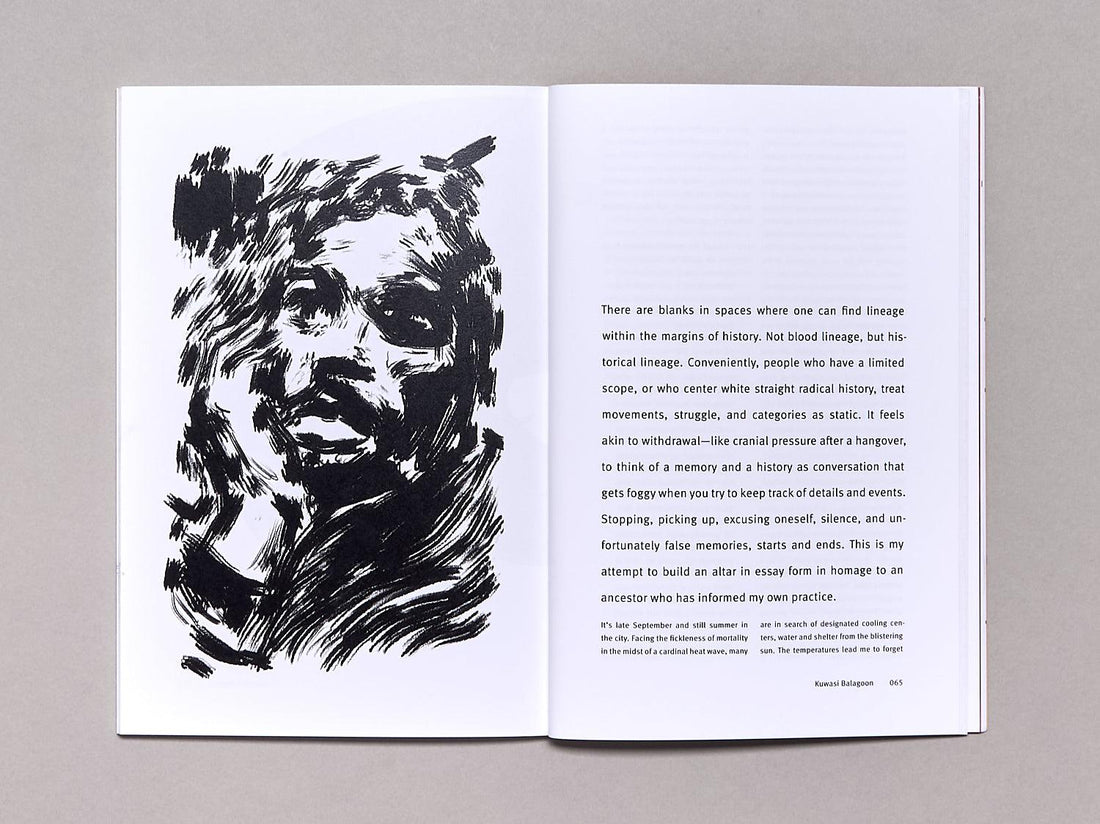 There are blanks in spaces where one can find lineage
within the margins of history. Not blood lineage, but his-
torical lineage. Conveniently, people who have a limited
scope, or who center white straight radical history, treat
movements, struggle, and categories as static. It feels
akin to withdrawal—like cranial pressure after a hangover,
to think of a memory and a history as conversation that
gets foggy when you try to keep track of details and events.
Stopping, picking up, excusing oneself, silence, and un-
fortunately false memories, starts and ends. This is my
attempt to build an altar in essay form in homage to an
ancestor who has informed my own practice.
It's late September and still summer in
the city. Facing the fickleness of mortality
in the midst of a cardinal heat wave, many
are in search of designated cooling cen-
ters, water and shelter from the blistering
sun. The temperatures lead me to forget
Kuwasi Balagoon 065